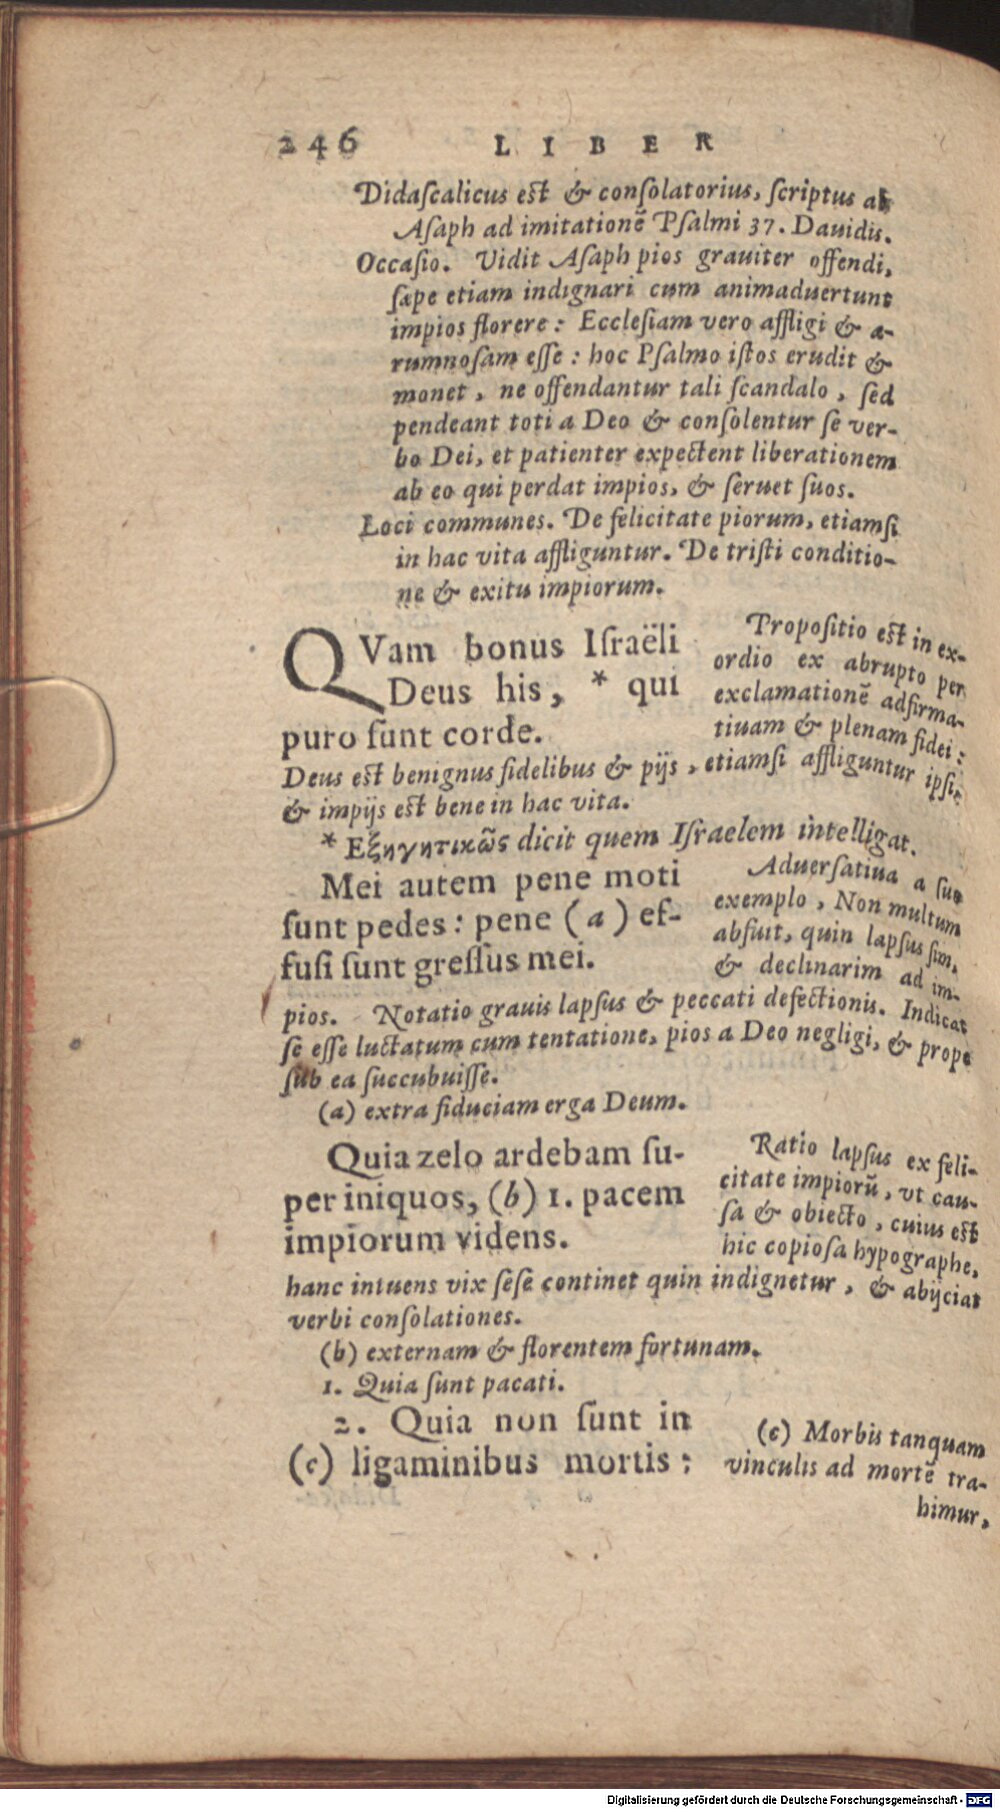 246 LIBER
Didaſcalicus est & conſolatorius, ſcriptus ab
Aſaph ad imitationẽ Pſalmi 37. Dauidis.
Occaſio. Vidit Aſaph pios grauiter offendi,
ſæpe etiam indignari cum animaduertunt
impios florere: Eccleſiam vero affligi & æ-
rumnoſam eſſe: hoc Pſalmo iſtos erudit &
monet, ne offendantur tali ſcandalo, ſed
pendeant toti a Deo & conſolentur ſe ver-
bo Dei, et patienter expectent liberationem
ab eo qui perdat impios, & ſeruet ſuos.
Loci communes. De felicitate piorum, etiamſi
in hac vita affliguntur. De triſti conditio-
ne & exitu impiorum.
QVam bonus Iſraëli
Deus his, * qui
puro ſunt corde.
Propoſitio est in ex-
ordio ex abrupto per
exclamationẽ adfirma-
tiuam & plenam fidei:
Deus est benignus fidelibus & pijs, etiamſi affliguntur ipſi,
& impijs est bene in hac vita.
* Εξηγητικῶς dicit quem Iſraelem intelligat.
Mei autem pene moti
ſunt pedes: pene (a) ef-
fuſi ſunt greſſus mei.
Aduerſatiua a ſuo
exemplo, Non multum
abfuit, quin lapſus ſim,
& declinarim ad im-
pios. Notatio grauis lapſus & peccati defectionis. Indicat
ſe eſſe luctatum cum tentatione, pios a Deo negligi, & prope
ſub ea ſuccubuiſſe.
(a) extra fiduciam erga Deum.
Quia zelo ardebam ſu-
per iniquos, (b) 1. pacem
impiorum videns.
Ratio lapſus ex feli-
citate impiorũ, vt cau-
ſa & obiecto, cuius est
hic copioſa hypographe,
hanc intuens vix ſeſe continet quin indignetur, & abijciat
verbi conſolationes.
(b) externam & florentem fortunam.
1. Quia ſunt pacati.
2. Quia non ſunt in
(c) ligaminibus mortis:
(c) Morbis tanquam
vinculis ad mortẽ tra-
himur,
Digitalisierung gefördert durch die Deutsche Forschungsgemeinschaft - DFG